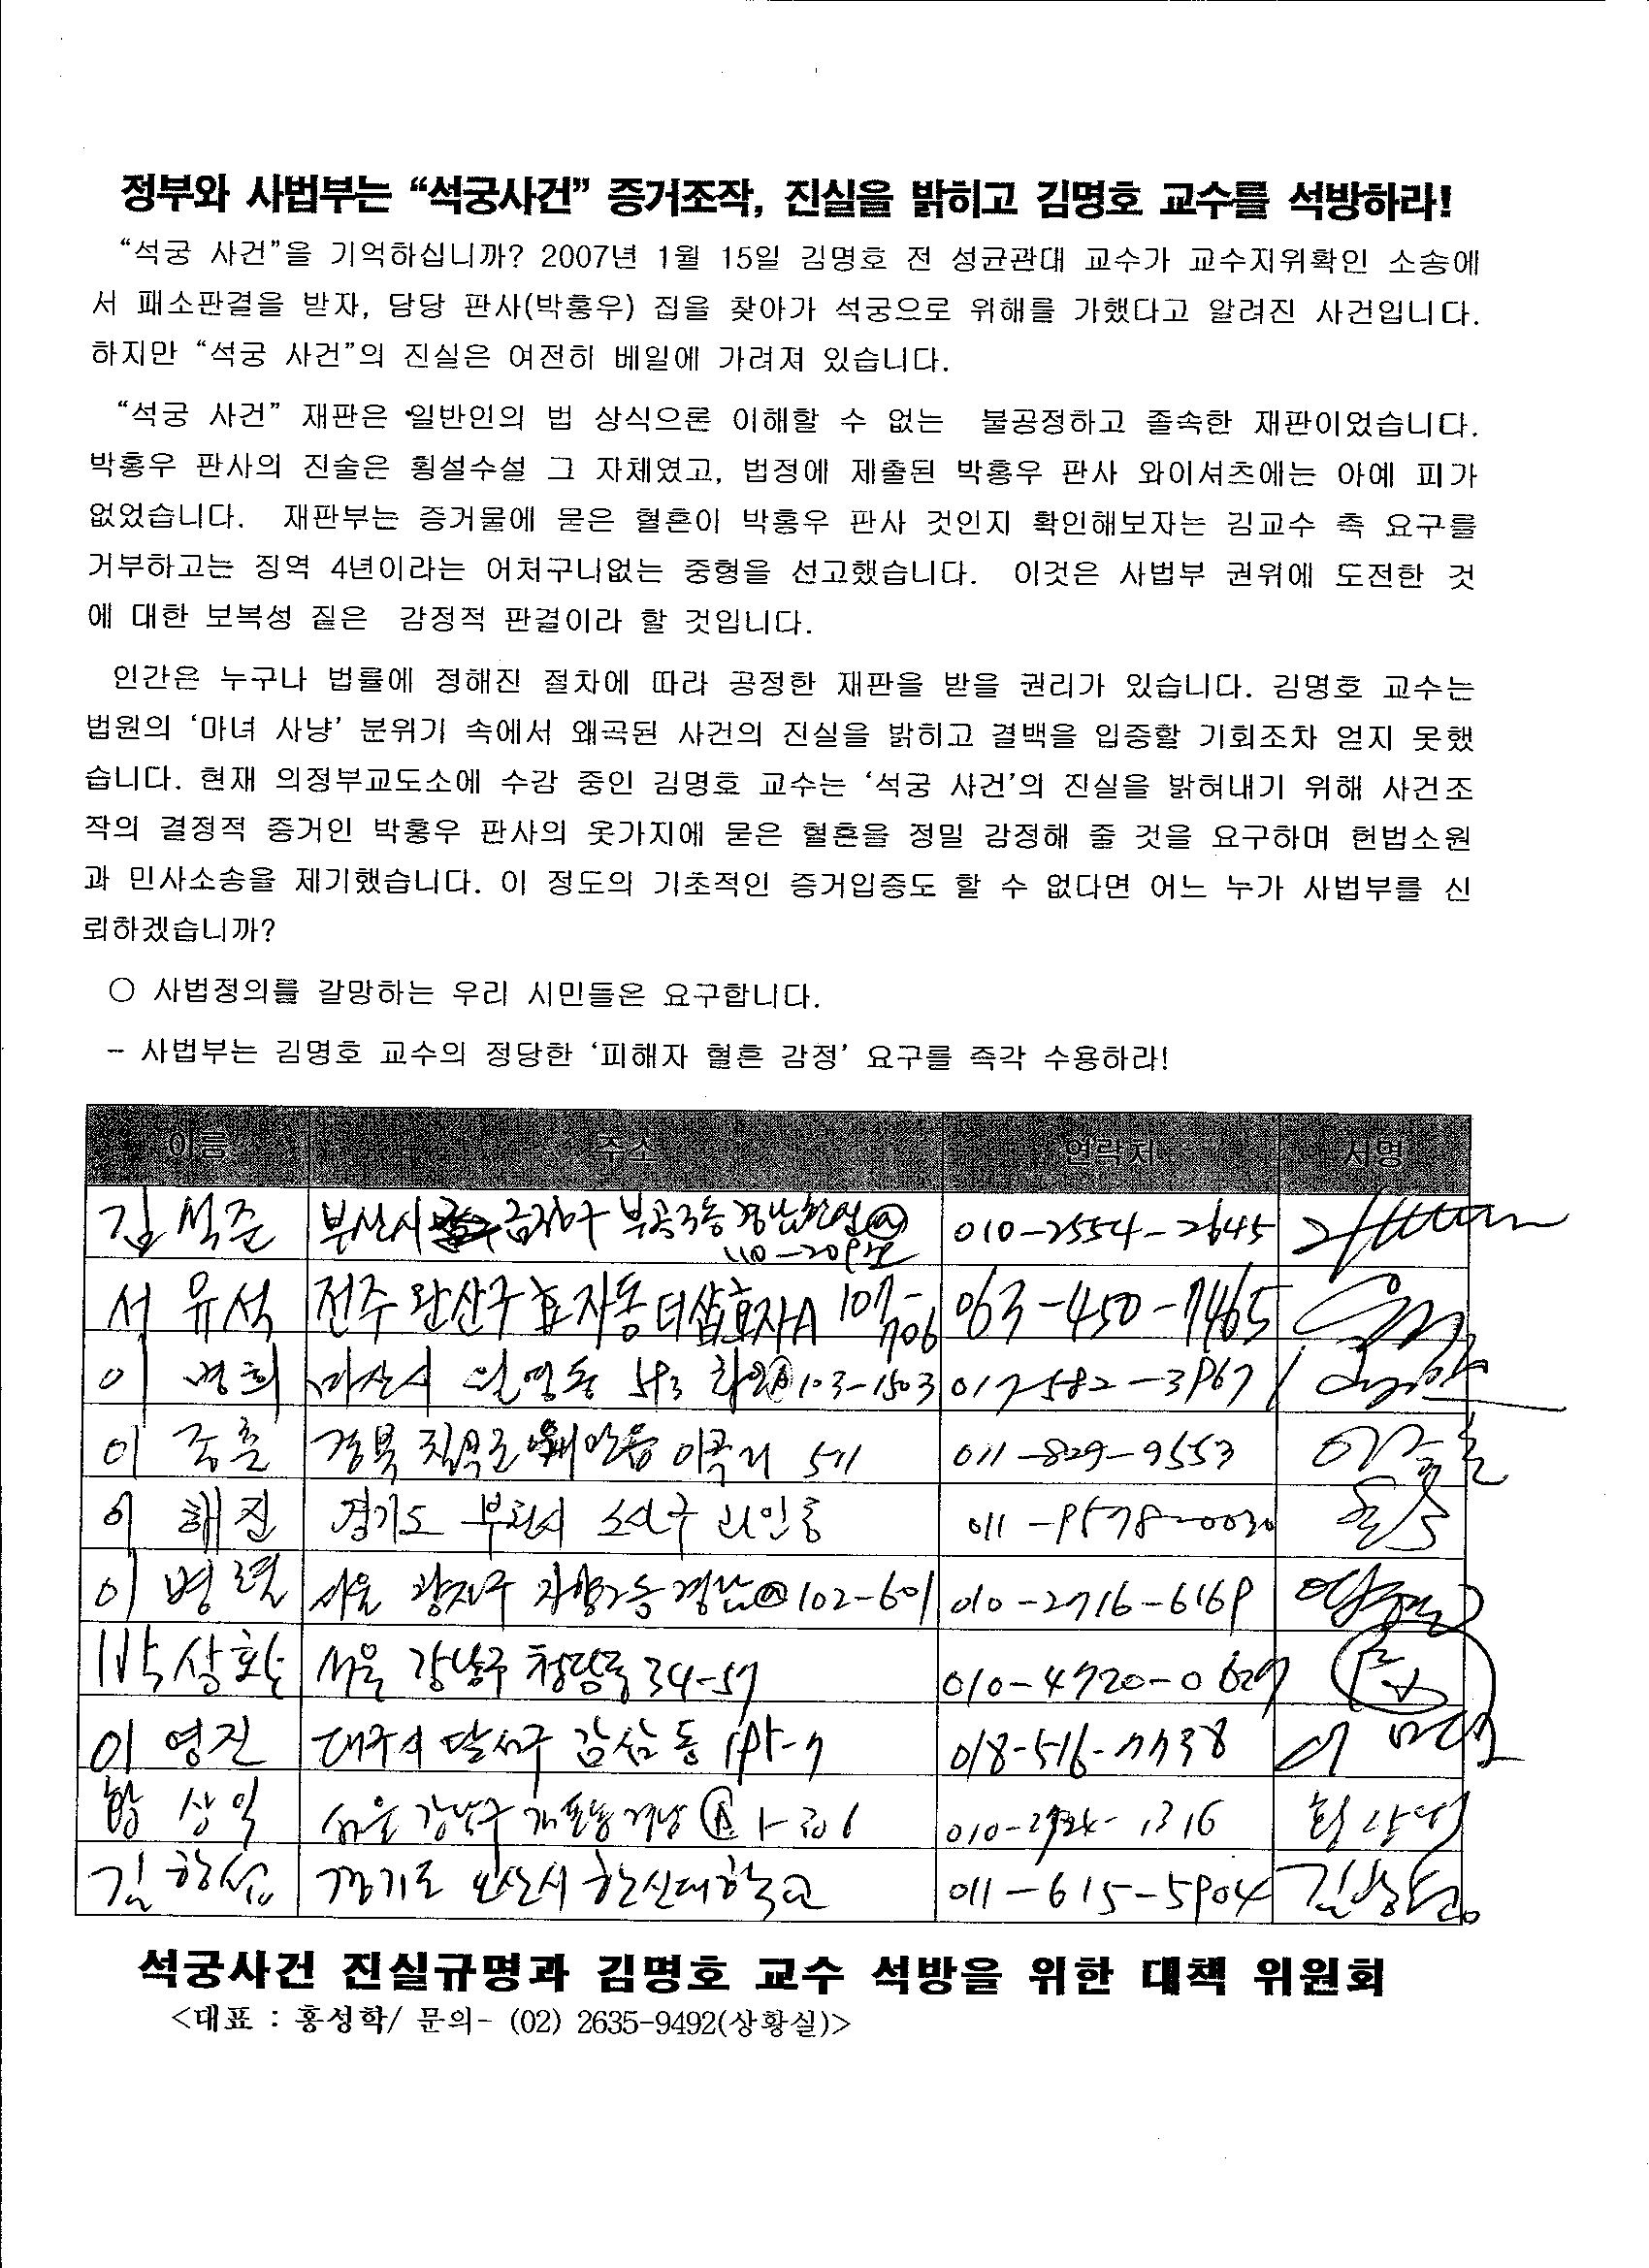 정부와 사법부는 “석궁사건” 증거조작, 진실을 밝히고 김명호 교수를 석방하라!
“석궁 사건”을 기억하십니까? 2007년 1월 15일 김명호 전 성균관대 교수가 교수지위확인 소송에
서 패소판결을 받자, 담당 판사(박홍우) 집을 찾아가 석궁으로 위해를 가했다고 알려진 사건입니다.
하지만 “석궁 사건”의 진실은 여전히 베일에 가려져 있습니다.
“석궁 사건” 재판은 일반인의 법 상식으론 이해할 수 없는 불공정하고 졸속한 재판이었습니다.
박홍우 판사의 진술은 횡설수설 그 자체였고, 법정에 제출된 박홍우 판사 와이셔츠에는 아예 피가
없었습니다. 재판부는 증거물에 묻은 혈흔이 박홍우 판사 것인지 확인해보자는 김교수 측 요구를
거부하고는 징역 4년이라는 어처구니없는 중형을 선고했습니다. 이것은 사법부 권위에 도전한 것
에 대한 보복성 짙은 감정적 판결이라 할 것입니다.
인간은 누구나 법률에 정해진 절차에 따라 공정한 재판을 받을 권리가 있습니다. 김명호 교수는
법원의 ‘마녀 사냥’ 분위기 속에서 왜곡된 사건의 진실을 밝히고 결백을 입증할 기회조차 얻지 못했
습니다. 현재 의정부교도소에 수감 중인 김명호 교수는 ‘석궁 사건’의 진실을 밝혀내기 위해 사건조
작의 결정적 증거인 박홍우 판사의 옷가지에 묻은 혈흔을 정밀 감정해 줄 것을 요구하며 헌법소원
과 민사소송을 제기했습니다. 이 정도의 기초적인 증거입증도 할 수 없다면 어느 누가 사법부를 신
뢰하겠습니까?
○ 사법정의를 갈망하는 우리 시민들은 요구합니다.
- 사법부는 김명호 교수의 정당한 ‘피해자 혈흔 감정’ 요구를 즉각 수용하라!
이름 주소 연락처 서명
김석준 부산시 금정구 부곡3동 경남한신@ 010-2554-2645
110-209호
서유석 전주 완산구 효자동 더샵효자A 107-706 063-450-7465
이경희 마산시 593 @103-1503 017-582-3967
이종춘 경북 칠곡군 왜관읍 571 011-829-9553
이해진 경기도 부천시 소사구 괴안동 011-9578-0030
이병렬 서울 광진구 자양2동 경남@102-601 010-2716-6169
박상환 서울 강남구 청담동 34-57 010-4720-0627
이영진 대구시 달서구 감삼동 018-516-7738
황상익 서울 강남구 개포동 경남 1-306
김항섭 경기도 오산시 한신대학교 011-615-5904 김항섭
석궁사건 진실규명과 김명호 교수 석방을 위한 대책 위원회
<대표 : 홍성학/ 문의- (02) 2635-9492(상황실)>